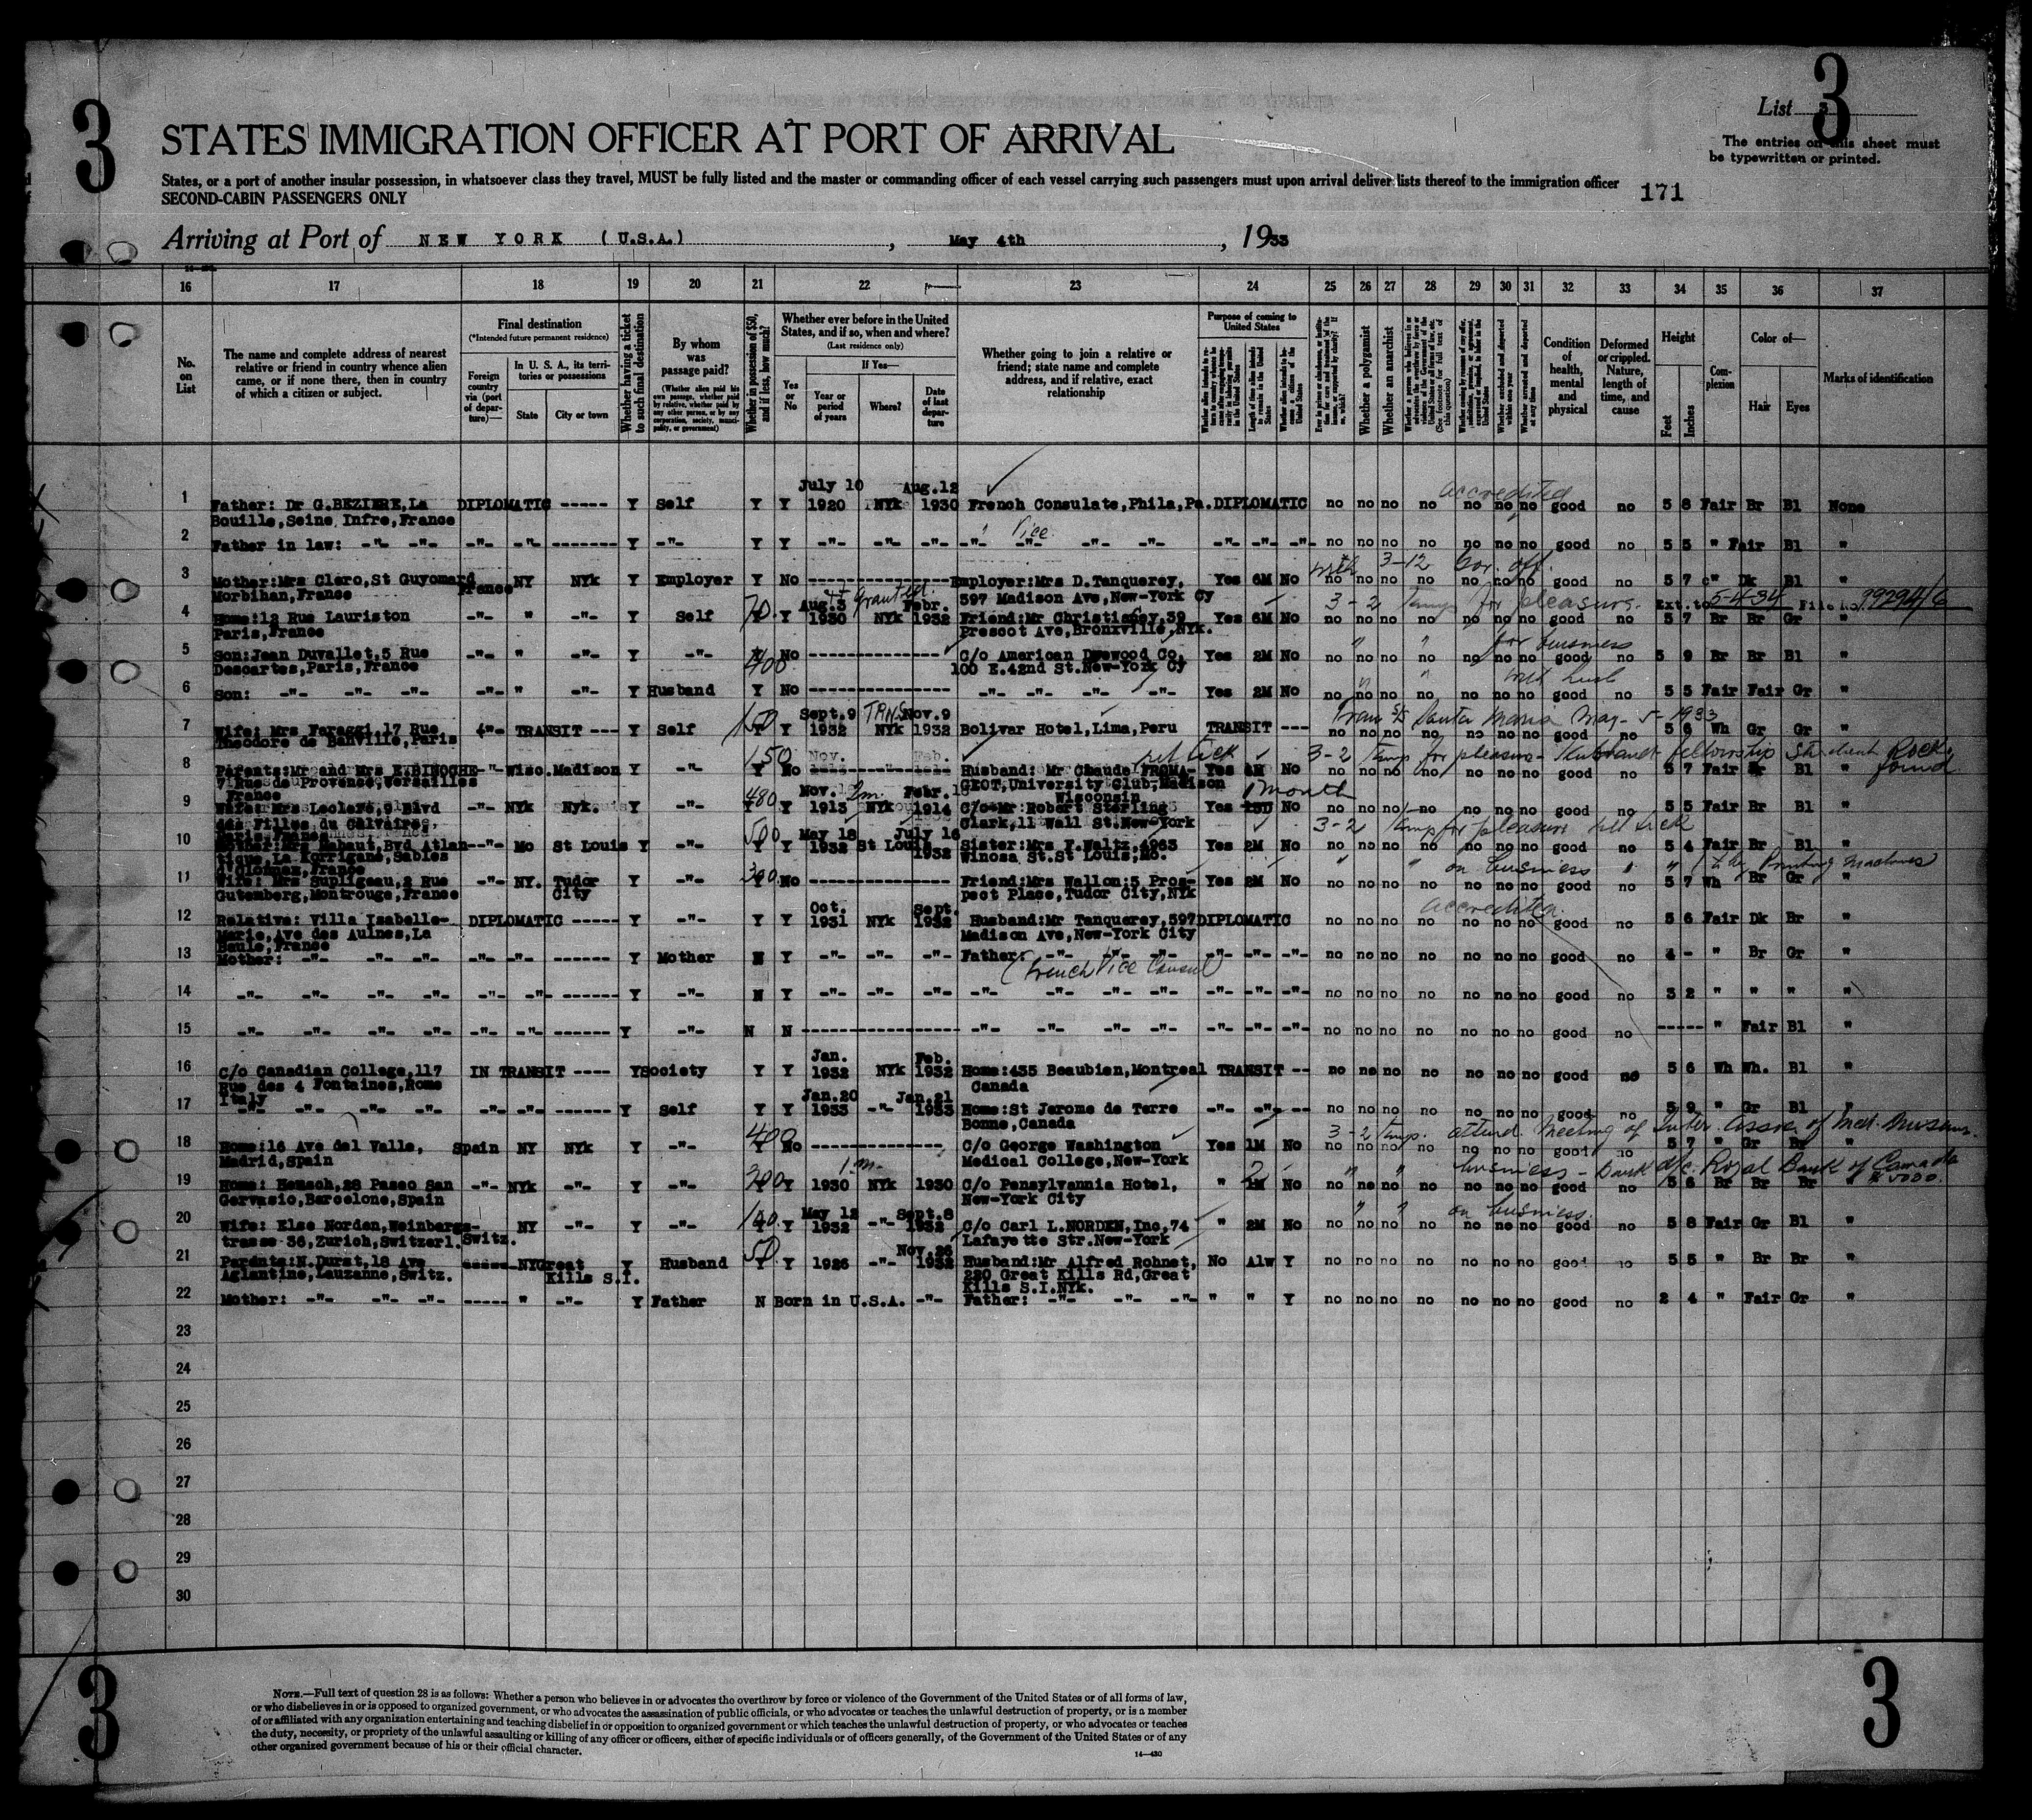 3
List 3
3
STATES IMMIGRATION OFFICER AT PORT OF ARRIVAL
The entries on this sheet must
be typewritten or printed.
States, or a port of another insular possession, in whatsoever class they travel, MUST be fully listed and the master or commanding officer of each vessel carrying such passengers must upon arrival deliver lists thereof to the immigration officer
SECOND-CABIN PASSENGERS ONLY
171
Arriving at Port of NEW YORK (U.S.A.), May 4th, 1933
16 17 18 19 20 21 22 23 24 25 26 27 28 29 30 31 32 33 34 35 36 37
No. on List
The name and complete address of nearest relative or friend in country whence alien came, or if none there, then in country of which a citizen or subject.
Final destination
(*Intended future permanent residence)
Foreign country via (port of departure)—
In U. S. A., its territories or possessions
State
City or town
Whether having a ticket to such final destination
By whom was passage paid?
(Whether alien paid his own passage, whether paid by relative, whether paid by any other person, or by any corporation, society, municipality, or government)
Whether in possession of $50, and if less, how much?
Whether ever before in the United States, and if so, when and where?
(Last residence only)
Yes or No
If Yes—
Year or period of years
Where?
Date of last departure
Whether going to join a relative or friend; state name and complete address, and if relative, exact relationship
Purpose of coming to United States
Length of time alien intends to remain in the United States
Whether a polygamist
Whether an anarchist
Condition of health, mental and physical
Deformed or crippled. Nature, length of time, and cause
Height
Feet
Inches
Complexion
Color of—
Hair
Eyes
Marks of identification
July 10 Aug.12 accredited
1 Father: Dr G.BEZIERE,La DIPLOMATIC ----- Y Self Y Y 1920 NYk 1930 French Consulate,Phila,Pa. DIPLOMATIC no no no no no no no good no 5 8 Fair Br Bl None
Bouille,Seine Infre,France
Vice
2 Father in law: -"- -"- -"- -"- ------- Y -"- Y Y -"- -"- -"- -"- -"- -"- -"- -"- -"- -"- no no no no no no no good no 5 5 " Fair Bl "
3-12 Gov. off.
3 Mother:Mrs Clero,St Guyomard France NY NYk Y Employer Y No --------------- Employer:Mrs D.Tanquerey, Yes 6M No no no no no no no no good no 5 7 " Dk Bl "
Morbihan,France 597 Madison Ave,New-York Cy
Aug.3 granted Febr. 3-2 temp for pleasure. Ext. to 5-4-34 File No. 99294/6
4 Home:12 Rue Lauriston -"- " -"- Y Self Y 1930 NYk 1932 Friend:Mr Christiancy,39 Yes 6M No no no no no no no no good no 5 7 Br Br Gr "
Paris,France Prescot Ave,Bronxville,NYk.
" " for business
5 Son:Jean Duvallet,5 Rue -"- " -"- Y -"- No --------------- C/o American Dyewood Co, Yes 2M No no no no no no no no good no 5 9 Br Br Bl "
Descartes,Paris,France 400 100 E.42nd St.New-York Cy
" " with husb
6 Son: -"- -"- -"- -"- " -"- Y Husband Y No --------------- -"- -"- -"- -"- Yes 2M No no no no no no no no good no 5 5 Fair Fair Gr "
Sept.9 TRNS Nov.9 Trans S/S Santa Maria May-5-1933
7 Wife: Mrs Faraggi,17 Rue -"- TRANSIT --- Y Self 150 Y 1932 NYk 1932 Bolivar Hotel,Lima,Peru TRANSIT --- no no no no no no no good no 5 6 Wh Gr Gr "
Theodore de Banville,Paris
150 ret tick 3-2 temp for pleasure fellowship student Rock. found
8 Parents:Mr and Mrs E.BINOCHE -"- Wisc.Madison Y -"- Y No Husband: Mr Claude FROMA- Yes No no no no no no no no good no 5 7 Fair Bl "
7 Rue de Provence,Versailles GEOT,University Club,Madison
France Wisconsin
480 Nov. 2m Febr. 1 month
9 Wife:Mrs Leclere,9 Blvd -"- NYk NYk. Y -"- Y Y 1913 NYk 1914 C/o Mr Robert Sterling Yes No no no no no no no no good no 5 5 Fair Br Bl "
des Filles du Calvaire, Clark,11 Wall St.New-York
Paris,France
500 May 18 July 16 3-2 temp for pleasure ret tick
10 Mother:Mrs Rabaut,Bvd Atlan- -"- Mo St Louis Y -"- Y Y 1932 St Louis 1932 Sister:Mrs F.Waltz,4963 Yes 2M No no no no no no no no good no 5 4 Fair Br Bl "
tique,La Korrigane,Sables Winosa St.St Louis,Mo.
d'Olonnes,France
300 " " on business " " Printing Machines
11 Wife: Mrs Supligeau,2 Rue -"- NY. Tudor Y -"- No --------------- Friend:Mrs Wallon:5 Pros- Yes 2M No no no no no no no no good no 5 7 Wh Br Gr "
Gutemberg,Montrouge,France City pect Place,Tudor City,NYk
Oct. Sept. accredited.
12 Relative: Villa Isabelle- DIPLOMATIC ------ Y -"- Y Y 1931 NYk 1932 Husband:Mr Tanquerey,597 DIPLOMATIC no no no no no no no good no 5 6 Fair Dk Br "
Marie,Ave des Aulnes,La Madison Ave,New-York City
Baule,France
13 Mother: -"- -"- -"- -"- -"- ------ Y Mother N Y -"- -"- -"- Father: -"- -"- -"- -"- -"- -"- no no no no no no no good no 4 - " Br Gr "
(French Vice Consul)
14 -"- -"- -"- -"- -"- -"- ------ Y -"- N Y -"- -"- -"- -"- -"- -"- -"- -"- -"- -"- no no no no no no no good no 3 2 " " " "
15 -"- -"- -"- -"- -"- -"- ------ Y -"- N N --------------- -"- -"- -"- -"- -"- -"- -"- no no no no no no no good no ----- " Fair Bl "
Jan. Feb.
16 C/o Canadian College,117 IN TRANSIT ---- Y Society Y Y 1932 NYk 1932 Home:435 Beaubien,Montreal TRANSIT -- no no no no no no no good no 5 6 Wh Wh. Bl "
Rue des 4 Fontaines,Rome Canada
Italy
Jan.20 Jan.21
17 -"- -"- -"- -"- -"- -"- ------ Y Self Y Y 1933 -"- 1933 Home:St Jerome de Terre -"- -"- -- no no no no no no no good no 5 9 " Gr Bl "
Bonne,Canada
400 3-2 temp. attend. Meeting of Inter. Assoc of Med. Museum.
18 Home:16 Ave del Valle, Spain NY NYk Y -"- No --------------- C/o George Washington Yes 1M No no no no no no no no good no 5 7 " Gr Br "
Madrid,Spain Medical College,New-York
300 1 m. 2 " " business - Bank a/c. Royal Bank of Canada $5000.
19 Home: Heusch,28 Paseo San -"- NYk -"- Y -"- Y 1930 NYk 1930 C/o Pensylvannia Hotel, " No no no no no no no no good no 5 6 Br Br Br "
Gervasio,Barcelone,Spain New-York City
100 May 12 Sept.8 " " on business.
20 Wife: Else Norden,Weinbergs- Switz. NY -"- Y -"- Y 1932 -"- 1932 C/o Carl L.NORDEN,Inc,74 " 2M No no no no no no no no good no 5 8 Fair Gr Bl "
trasse 36,Zurich,Switzerl. Lafayette Str.New-York
50 Nov.26
21 Parents:N.Durst,18 Ave ----- NY Great Y Husband Y Y 1926 -"- 1932 Husband:Mr Alfred Rohnet, No Alw Y no no no no no no no good no 5 5 " Br Br "
Aglantine,Lauzanne,Switz. Kills S.I. 220 Great Kills Rd,Great
Kills S.I.NYk.
22 Mother: -"- -"- -"- ----- " -"- Y Father N Born in U.S.A. -"- Father: -"- -"- -"- " " Y no no no no no no no good no 2 4 " Fair Gr "
23
24
25
26
27
28
29
30
3
3
NOTE.—Full text of question 28 is as follows: Whether a person who believes in or advocates the overthrow by force or violence of the Government of the United States or of all forms of law,
or who disbelieves in or is opposed to organized government, or who advocates the assassination of public officials, or who advocates or teaches the unlawful destruction of property, or is a member
of or affiliated with any organization entertaining and teaching disbelief in or opposition to organized government or which teaches the unlawful destruction of property, or who advocates or teaches
the duty, necessity, or propriety of the unlawful assaulting or killing of any officer or officers, either of specific individuals or of officers generally, of the Government of the United States or of any
other organized government because of his or their official character.
14—430